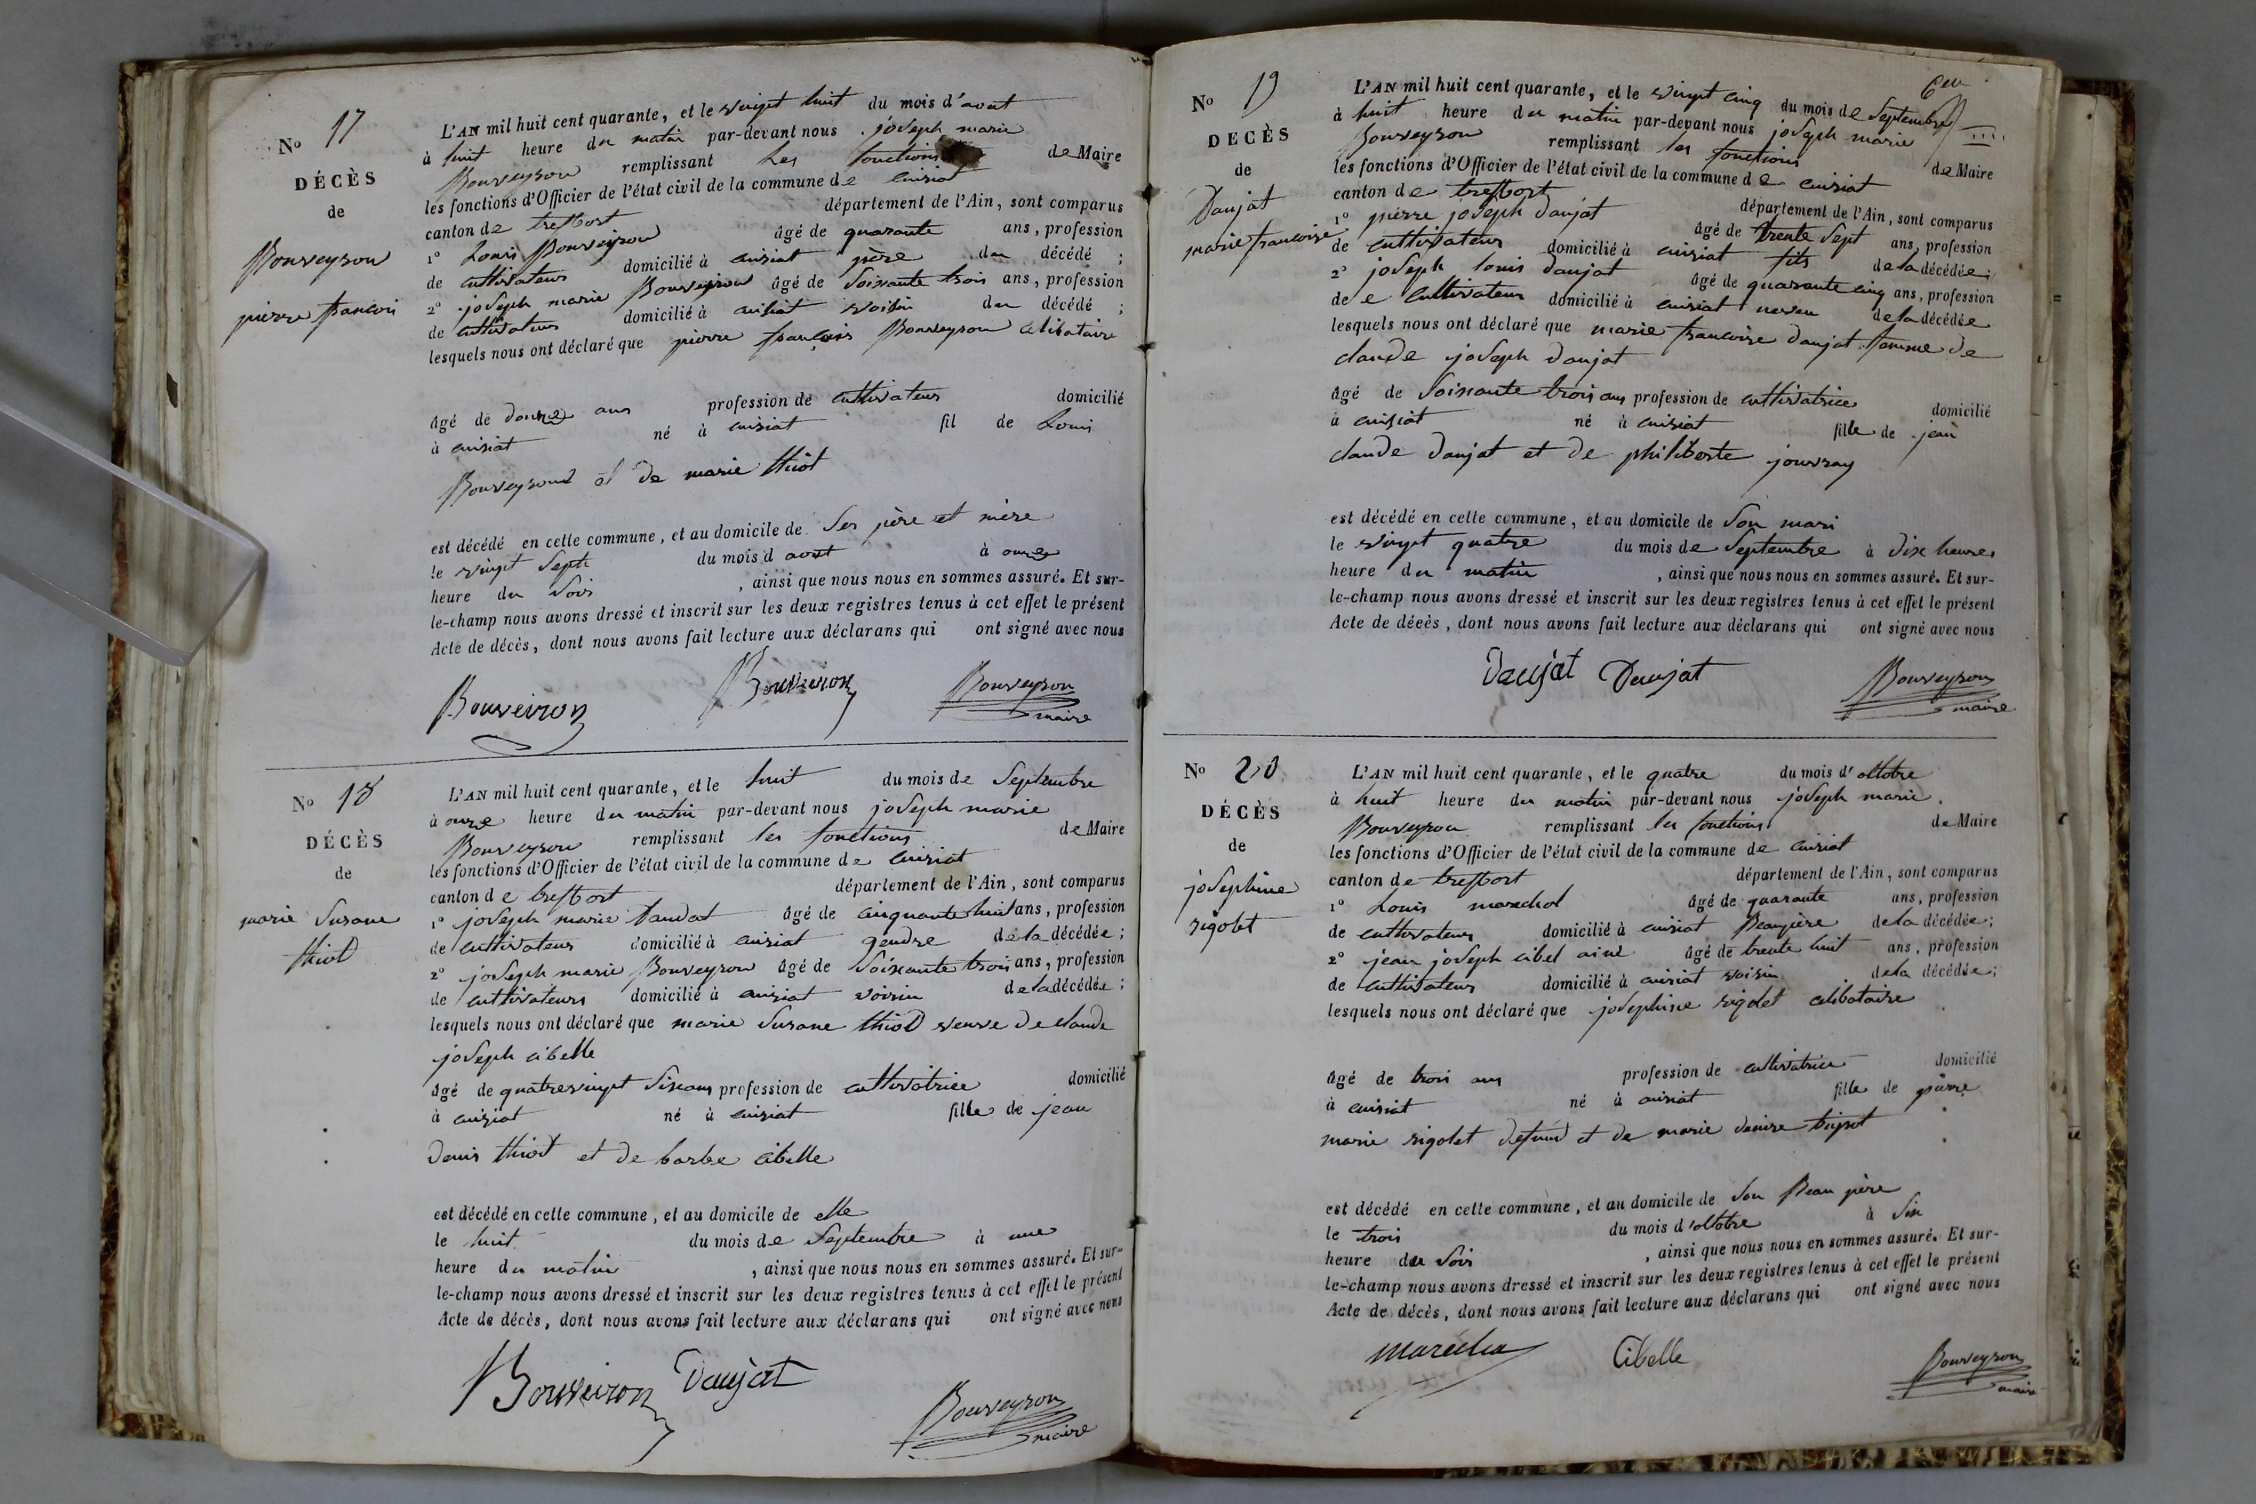 No 17
DÉCÈS
de
Bouveyron
pierre francois
L'AN mil huit cent quarante, et le vingt huit du mois d'avut
à huit heure du matin par-devant nous joseph marie
Bouveyron remplissant les fonctions de Maire
les fonctions d'Officier de l'état civil de la commune de cuisiat
canton de treffort département de l'Ain, sont comparus
1o Louis Bouveyron âgé de quarante ans, profession
de cultivateur domicilié à cuisiat père du décédé ;
2o joseph marie Bouveyron âgé de soixante trois ans, profession
de cultivateur domicilié à cuisiat voisin du décédé ;
lesquels nous ont déclaré que pierre françois Bouveyron celibataire
âgé de douze ans profession de cultivateur domicilié
à cuisiat né à cuisiat fil de Louis
Bouveyrond et de marie thiot
est décédé en cette commune, et au domicile de ses père et mère
le vingt sept du mois d avut à onze
heure du soir , ainsi que nous nous en sommes assuré. Et sur-
le-champ nous avons dressé et inscrit sur les deux registres tenus à cet effet le présent
Acte de décès, dont nous avons fait lecture aux déclarans qui ont signé avec nous
Bouveiron Bouveiron Bouveyron
maire
No 18
DÉCÈS
de
marie Susane
thiot
L'AN mil huit cent quarante, et le huit du mois de Septembre
à onze heure du matin par-devant nous joseph marie
Bouveyron remplissant les fonctions de Maire
les fonctions d'Officier de l'état civil de la commune de cuisiat
canton de treffort département de l'Ain, sont comparus
1o joseph marie âgé de cinquante huit ans, profession
de cultivateur domicilié à cuisiat gendre de la décédée ;
2o joseph marie Bouveyron âgé de soixante trois ans, profession
de cultivateurs domicilié à cuisiat voisin de la décédée ;
lesquels nous ont déclaré que marie Susane thiot veuve de claude
joseph cibelle
âgé de quatrevingt six ans profession de cultivatrice domicilié
à cuisiat né à cuisiat fille de jean
denis thiot et de barbe cibelle
est décédé en cette commune, et au domicile de elle
le huit du mois de Septembre à une
heure du matin , ainsi que nous nous en sommes assuré. Et sur-
le-champ nous avons dressé et inscrit sur les deux registres tenus à cet effet le présent
Acte de décès, dont nous avons fait lecture aux déclarans qui ont signé avec nous
Bouveiron Daujat Bouveyron
maire
No 19
DECÈS
de
Daujat
marie francoise
L'AN mil huit cent quarante, et le vingt cinq du mois de Septembre
à huit heure du matin par-devant nous joseph marie
Bouveyron remplissant les fonctions de Maire
les fonctions d'Officier de l'état civil de la commune de cuisiat
canton de treffort département de l'Ain, sont comparus
1o pierre joseph daujat âgé de trente sept ans, profession
de cultivateur domicilié à cuisiat fils de la décédée ;
2o joseph louis daujat âgé de quarante cinq ans, profession
de e cultivateur domicilié à cuisiat neveu de la décédée
lesquels nous ont déclaré que marie francoise daujat femme de
claude joseph daujat
âgé de soixante trois ans profession de cultivatrice domicilié
à cuisiat né à cuisiat fille de jean
claude daujat et de philiberte jouvray
est décédé en cette commune, et au domicile de son mari
le vingt quatre du mois de Septembre à dix heures
heure du matin , ainsi que nous nous en sommes assuré. Et sur-
le-champ nous avons dressé et inscrit sur les deux registres tenus à cet effet le présent
Acte de décès, dont nous avons fait lecture aux déclarans qui ont signé avec nous
Daujat Daujat Bouveyron
maire
No 20
DÉCÈS
de
josephine
rigolet
L'AN mil huit cent quarante, et le quatre du mois d'oltobre
à huit heure du matin par-devant nous joseph marie
Bouveyron remplissant les fonctions de Maire
les fonctions d'Officier de l'état civil de la commune de cuisiat
canton de treffort département de l'Ain, sont comparus
1o Louis marechal âgé de quarante ans, profession
de cultivateur domicilié à cuisiat Beaupière de la décédée ;
2o jean joseph cibel ainé âgé de trente huit ans, profession
de cultivateur domicilié à cuisiat voisin de la décédée ;
lesquels nous ont déclaré que josephine rigolet celibataire
âgé de trois ans profession de cultivatrice domicilié
à cuisiat né à cuisiat fille de pierre
marie rigolet defund et de marie denise
est décédé en cette commune, et au domicile de son Beau père
le trois du mois d'oltobre à six
heure du soir , ainsi que nous nous en sommes assuré. Et sur-
le-champ nous avons dressé et inscrit sur les deux registres tenus à cet effet le présent
Acte de décès, dont nous avons fait lecture aux déclarans qui ont signé avec nous
Cibelle Bouveyron
maire